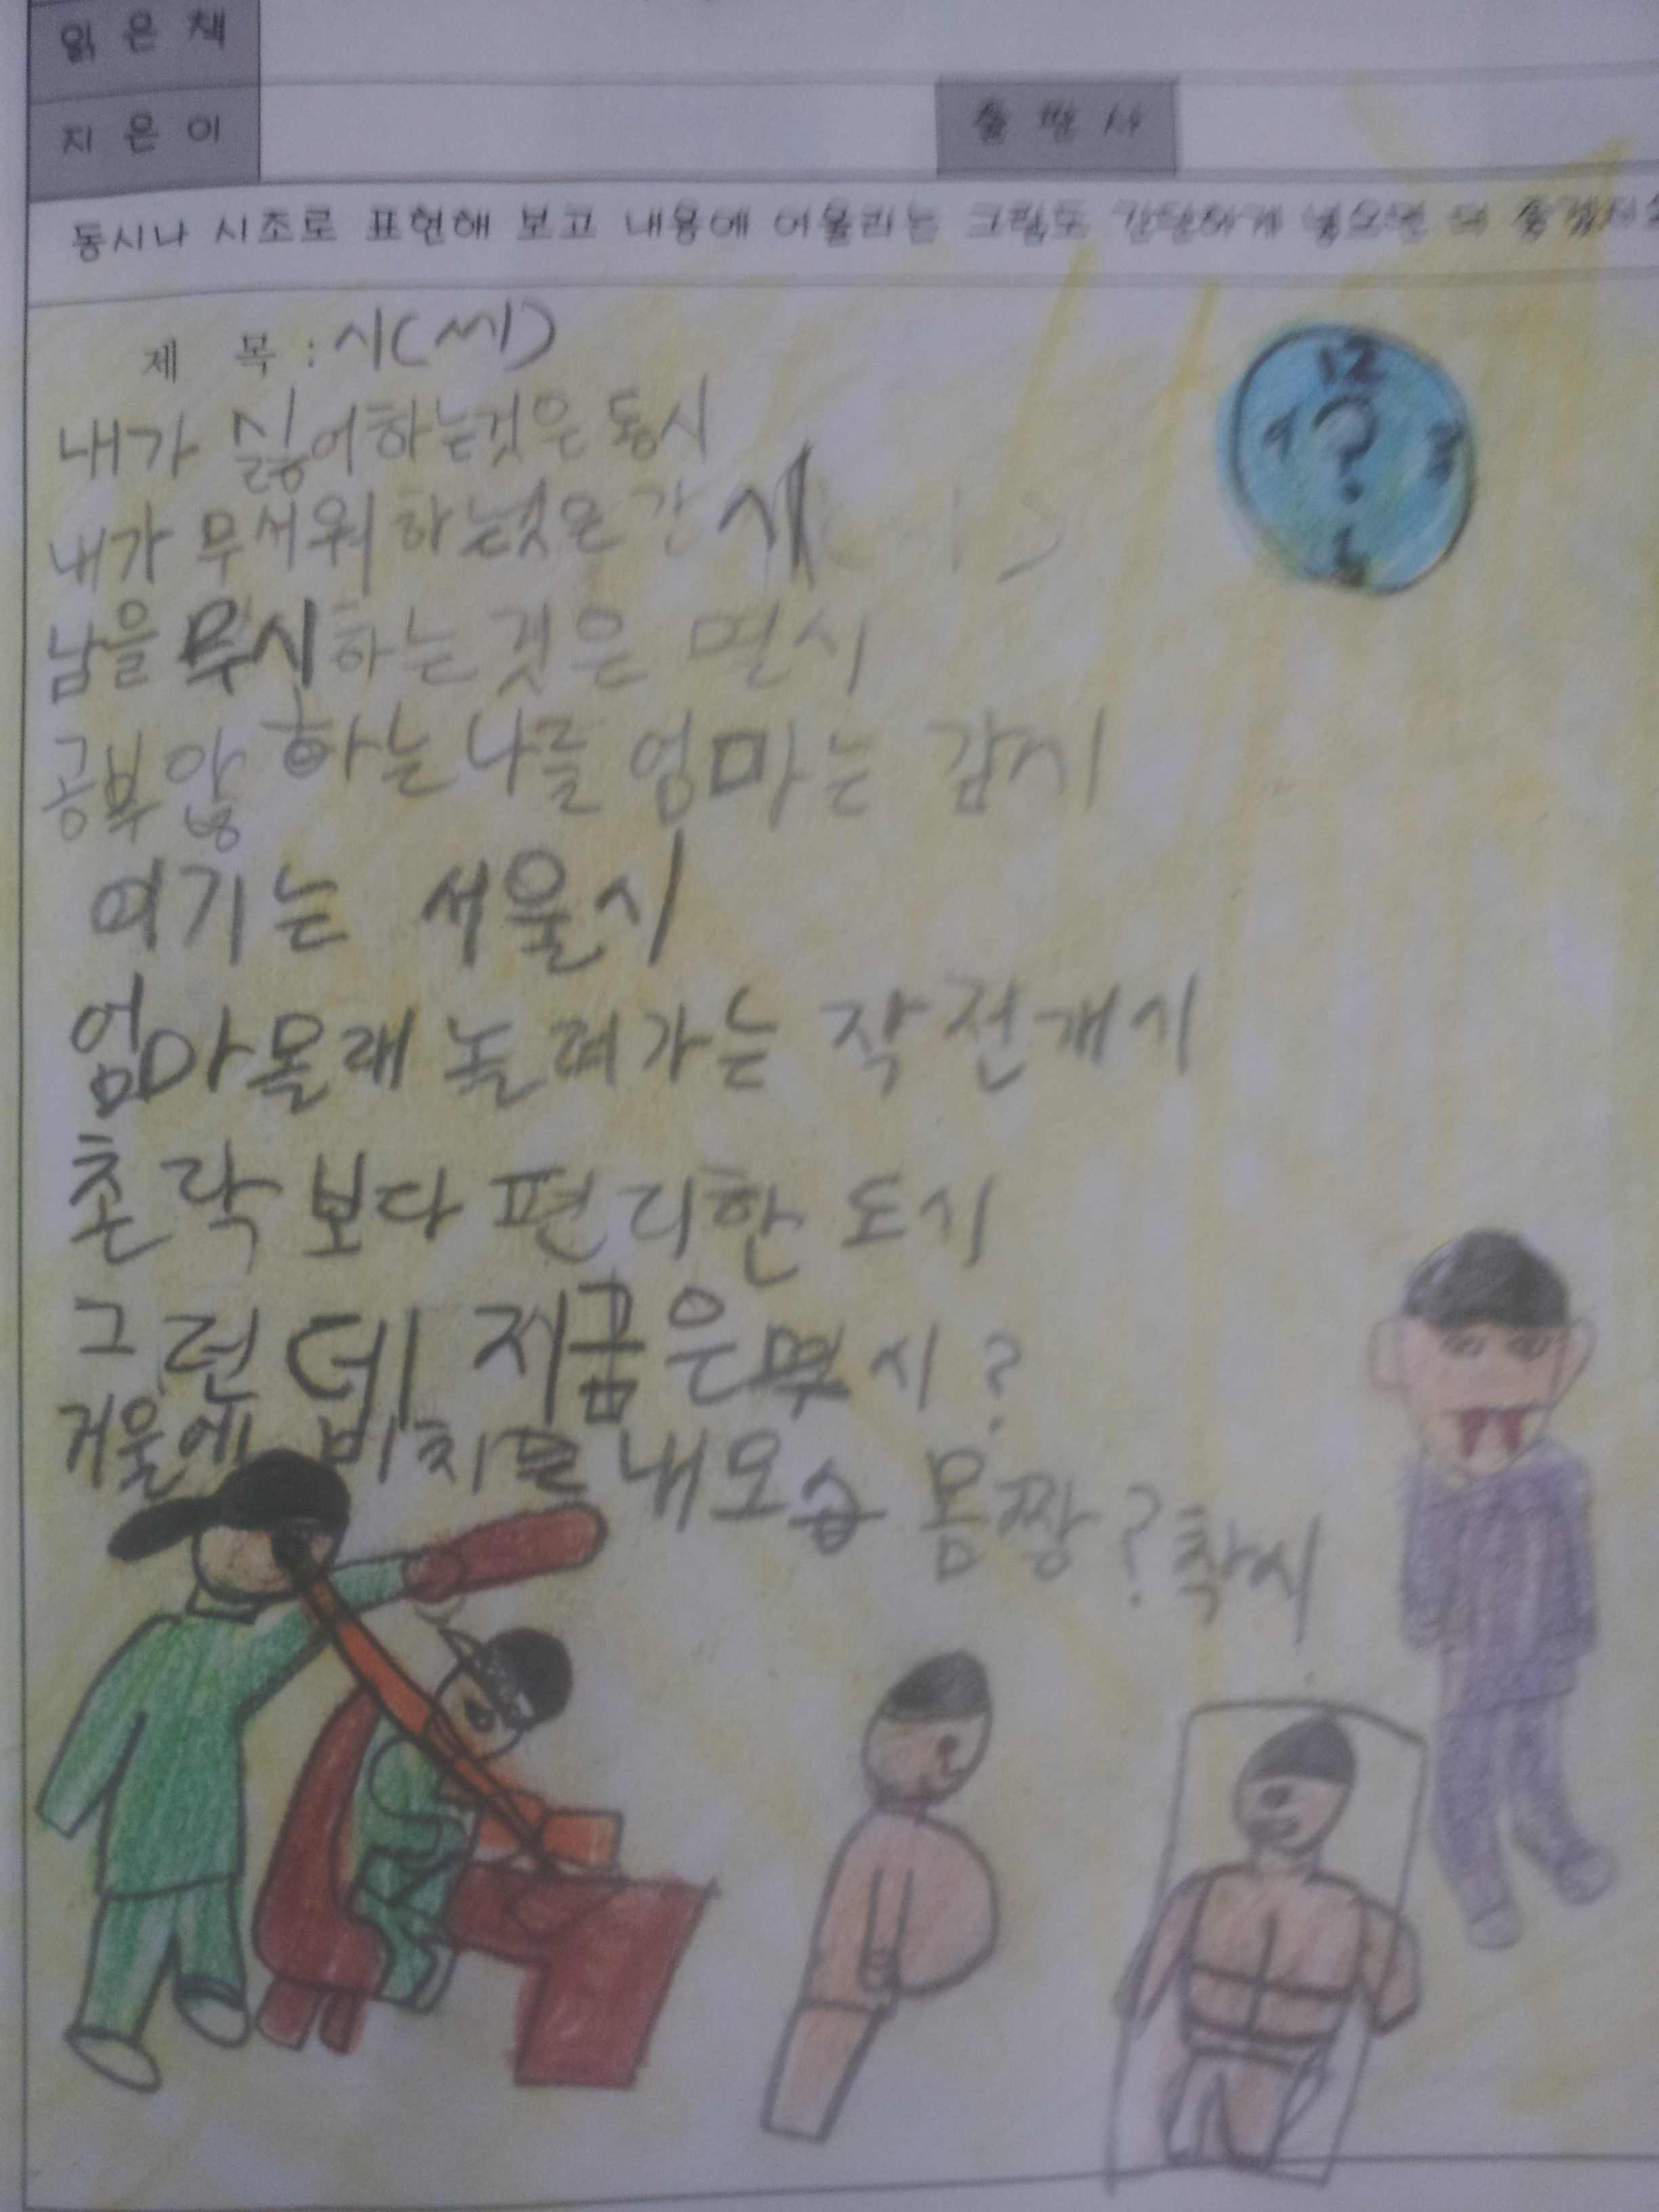 읽 은 책
지 은 이
출 판 사
동시나 시조로 표현해 보고 내용에 어울리는 그림도
제 목 : 시(씨)
내가 싫어하는것은 동시
내가 무서워 하는것은 간
남을 무시하는 것은 멸시
공부 않 하는 나를 엄마는 감시
여기는 서울시
엄마몰래 놀려가는 작전개시
촌락보다 편리한 도시
그런데 지굼은 몇시?
거울에 비치믄 내모습 몸짱? 착시
12
?
9 3
6